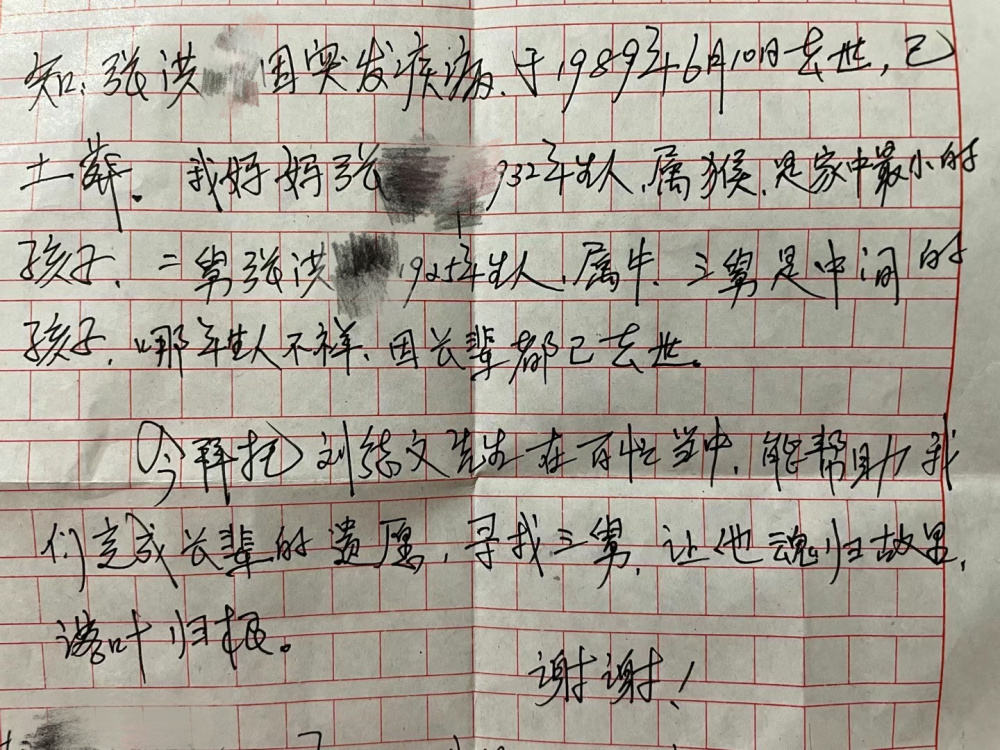 知,张洪 因突发疾病,于1989年6月10日去世,已
土葬。我妈妈张 932年生人,属猴,是家中最小的
孩子,二舅张洪 1925年生人,属牛,三舅是中间的
孩子,哪年生人不祥,因长辈都已去世。
今拜托刘德文先生在百忙当中,能帮助我
们完成长辈的遗愿,寻找三舅,让他魂归故里,
落叶归根。
谢谢!